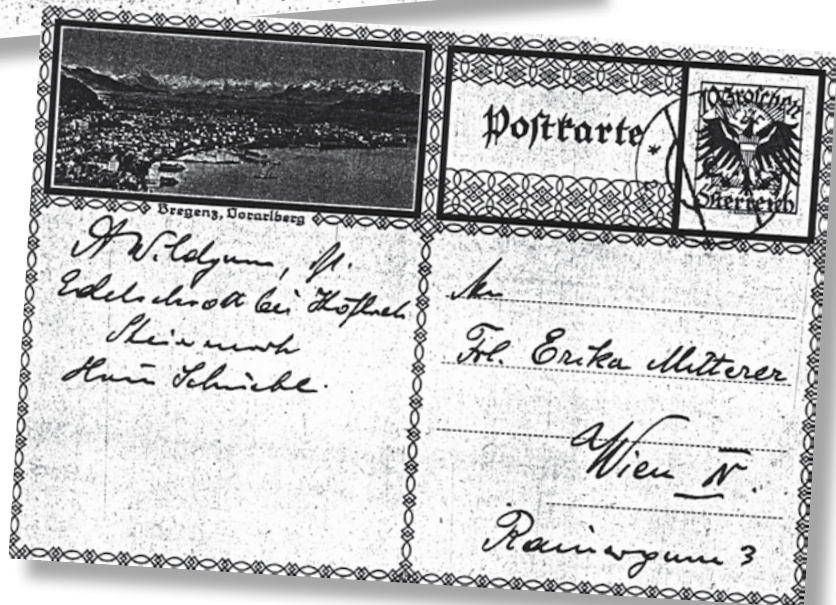 Bregenz, Vorarlberg
Postkarte
10 Groschen
Österreich
A Wildgans, St.
Edelschrott bei Köflach
Steiermark
An
Frl. Erika Mitterer
Wien IV.
Rainergasse 3